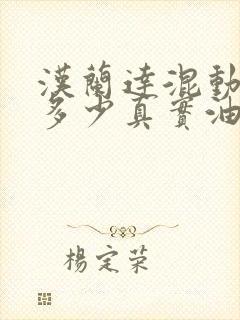 漢蘭達混動
多少真實油
楊定荣